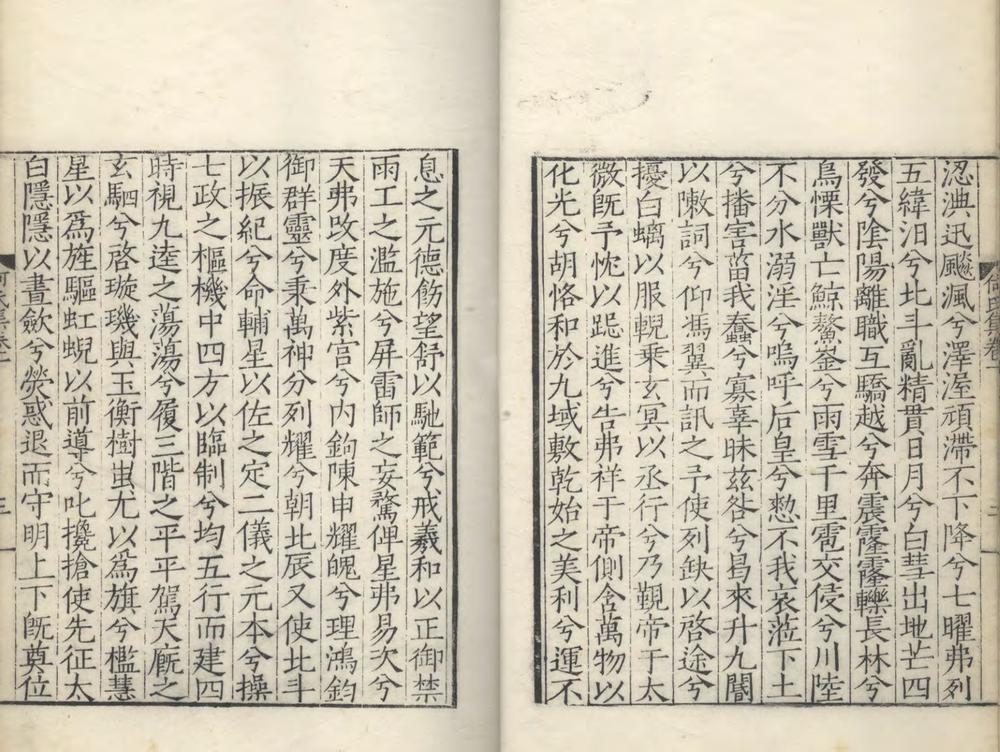 涊淟迅飈渢兮澤淫頑滯不下降兮七曜弗列
五緯汨兮北斗亂精貫日月兮白彗出地芒四
發兮陰陽離職互驕越兮奔震霳霳轢長林兮
鳥慄獸亡鯨鰲釜兮雨雪千里雹交侵兮川陸
不分水溺淫兮嗚呼后皇兮憖不我哀蒞下土
兮播害菑我蠢兮寡辜昧茲咎兮曷來升九閽
以陳詞兮仰馮翼而訊之予使列缺以啓途兮
擾白螭以服輗乘玄冥以丞行兮乃覲帝于太
微旣予忱以跽進兮告弗祥于帝側含萬物以
化光兮胡恪和於九域敷乾始之美利兮運不
息之元德飭望舒以馳範兮戒羲和以正御禁
雨工之濫施兮屏雷師之妄騖俾星弗易次兮
天弗改度外紫宮兮内鉤陳申耀魄兮理鴻鈞
御群靈兮秉萬神分列耀兮朝北辰又使北斗
以振紀兮命輔星以佐之定二儀之元本兮操
七政之樞機中四方以臨制兮均五行而建四
時視九逵之蕩蕩兮履三階之平平駕天廐之
玄駟兮啓璇璣與玉衡樹蚩尤以爲旗兮檻慧
星以爲旌驅虹蜺以前導兮叱攙搶使先征太
白隱隱以晝歛兮熒惑退而守明上下旣奠位